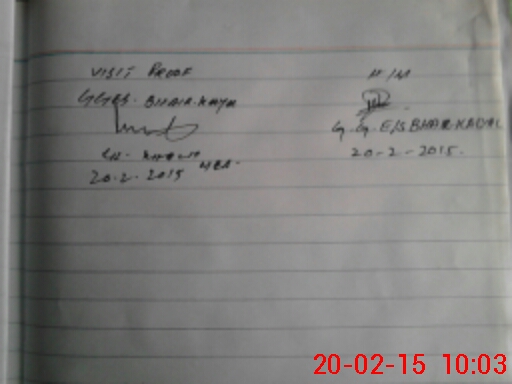 VISIT PROOF
GGES. BHAR.
20.2.2015
H/M
G.G.E/S BHAR.KADAL
20-2-2015.
20-02-15 10:03